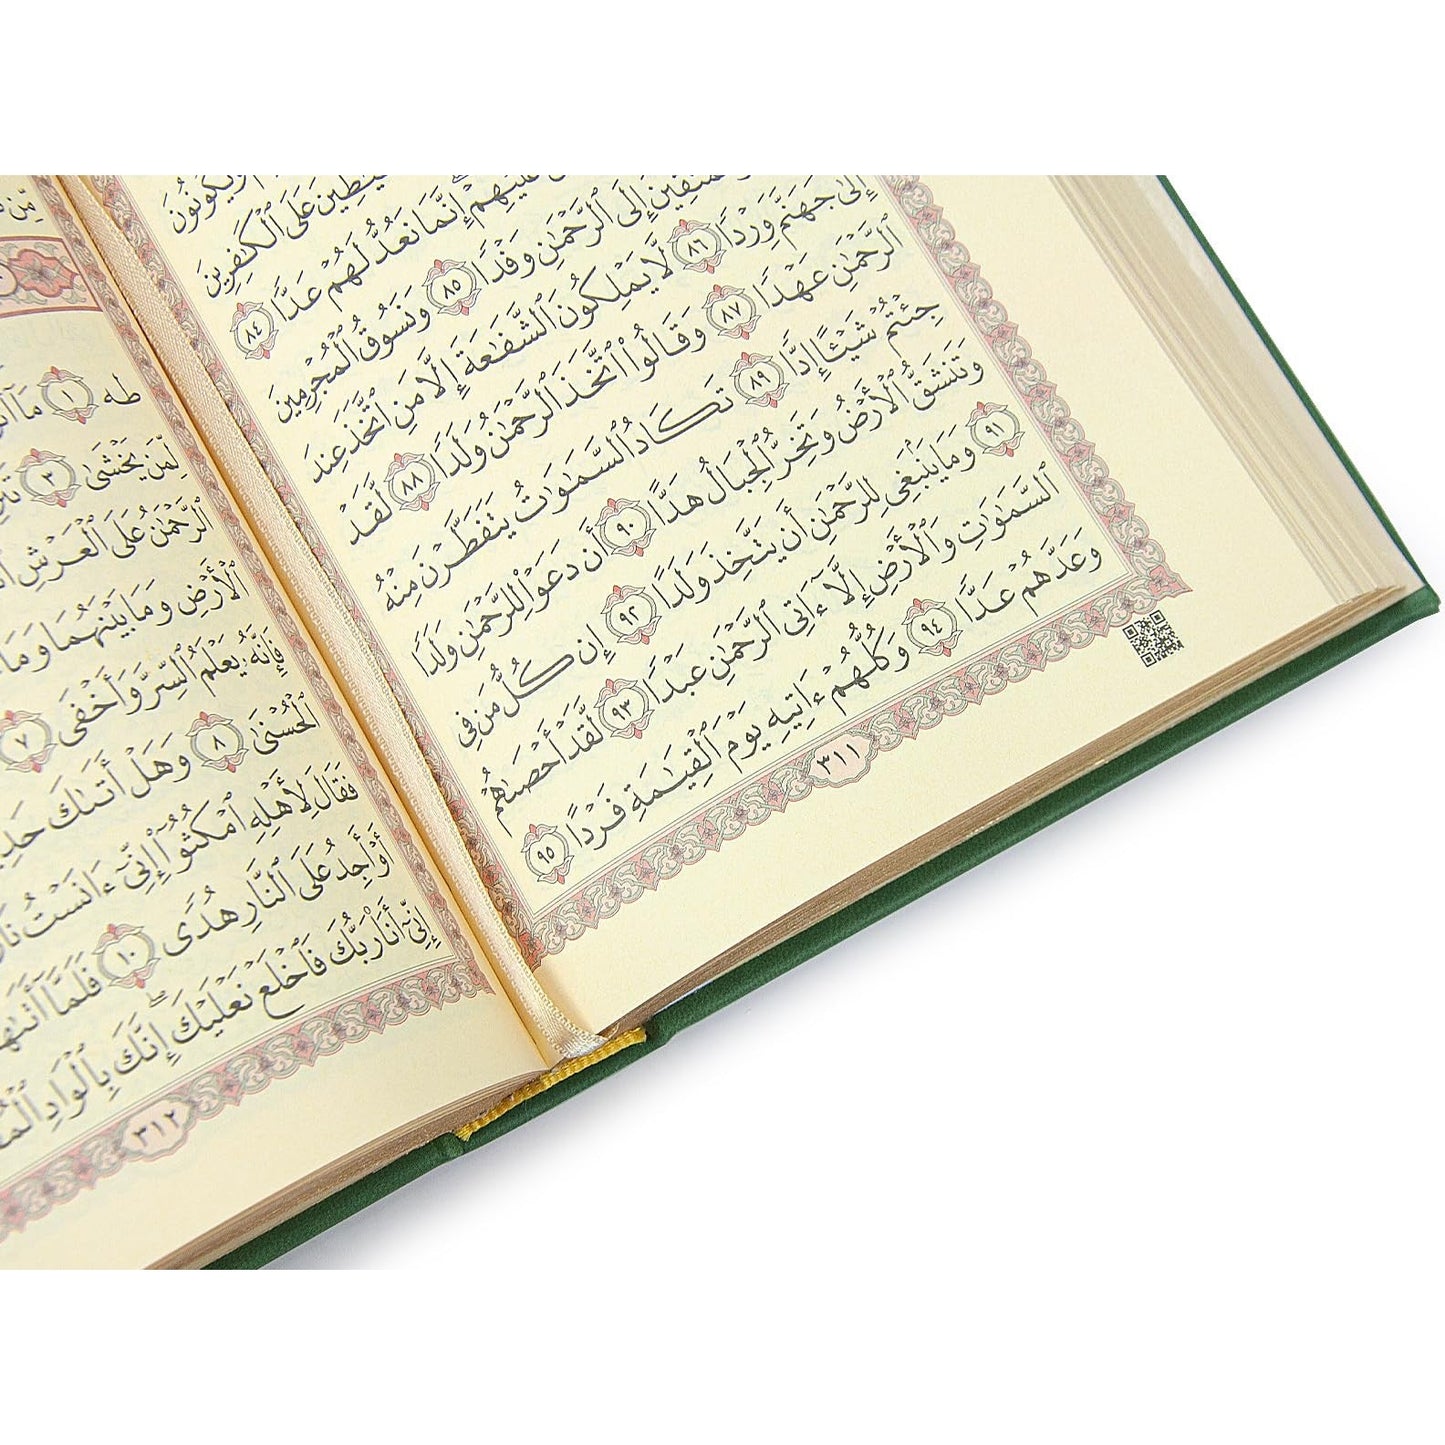 وَيَكُونُونَ
عَلَى ٱلْكَٰفِرِينَ
إِنَّمَا نَعُدُّ لَهُمْ عَدًّا ٨٤
إِلَى ٱلرَّحْمَٰنِ وَفْدًا ٨٥ وَنَسُوقُ ٱلْمُجْرِمِينَ
إِلَىٰ جَهَنَّمَ وِرْدًا ٨٦ لَّا يَمْلِكُونَ ٱلشَّفَٰعَةَ إِلَّا مَنِ ٱتَّخَذَ عِندَ
ٱلرَّحْمَٰنِ عَهْدًا ٨٧ وَقَالُوا۟ ٱتَّخَذَ ٱلرَّحْمَٰنُ وَلَدًا ٨٨ لَّقَدْ
جِئْتُمْ شَيْـًٔا إِدًّا ٨٩ تَكَادُ ٱلسَّمَٰوَٰتُ يَتَفَطَّرْنَ مِنْهُ
وَتَنشَقُّ ٱلْأَرْضُ وَتَخِرُّ ٱلْجِبَالُ هَدًّا ٩٠ أَن دَعَوْا۟ لِلرَّحْمَٰنِ وَلَدًا
٩١ وَمَا يَنۢبَغِى لِلرَّحْمَٰنِ أَن يَتَّخِذَ وَلَدًا ٩٢ إِن كُلُّ مَن فِى
ٱلسَّمَٰوَٰتِ وَٱلْأَرْضِ إِلَّآ ءَاتِى ٱلرَّحْمَٰنِ عَبْدًا ٩٣ لَّقَدْ أَحْصَىٰهُمْ
وَعَدَّهُمْ عَدًّا ٩٤ وَكُلُّهُمْ ءَاتِيهِ يَوْمَ ٱلْقِيَٰمَةِ فَرْدًا ٩٥
٣١١
مِّن
طه ١ مَآ
لِّمَن يَخْشَىٰ ٣
ٱلرَّحْمَٰنُ عَلَى ٱلْعَرْشِ
ٱلْأَرْضِ وَمَا بَيْنَهُمَا وَمَا
فَإِنَّهُۥ يَعْلَمُ ٱلسِّرَّ وَأَخْفَى ٧
ٱلْحُسْنَىٰ ٨ وَهَلْ أَتَىٰكَ
فَقَالَ لِأَهْلِهِ ٱمْكُثُوٓا۟ إِنِّىٓ ءَانَسْتُ
أَوْ أَجِدُ عَلَى ٱلنَّارِ هُدًى ١٠ فَلَمَّآ أَتَىٰهَا
إِنِّىٓ أَنَا۠ رَبُّكَ فَٱخْلَعْ نَعْلَيْكَ ۖ إِنَّكَ بِٱلْوَادِ
٣١٢